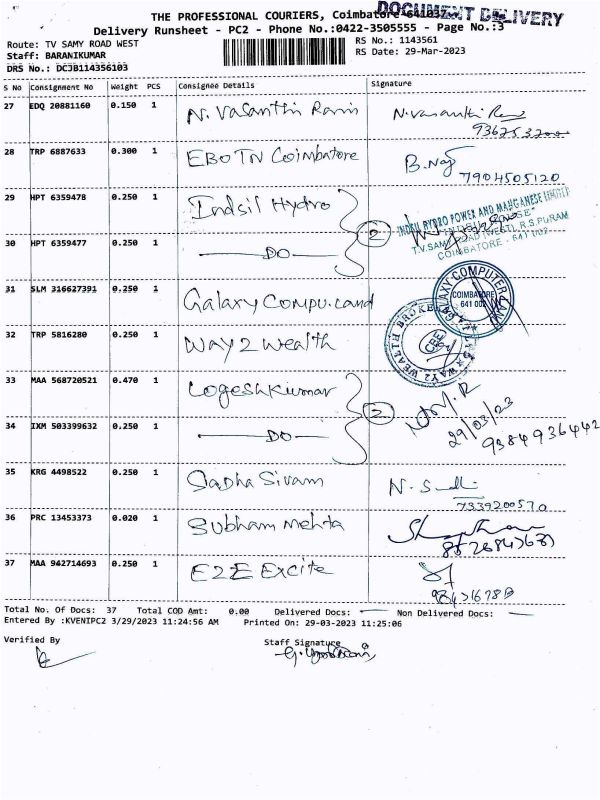 THE PROFESSIONAL COURIERS, Coimbatore-641037
DOCUMENT DELIVERY
Delivery Runsheet - PC2 - Phone No.:0422-3505555 - Page No.:3
Route: TV SAMY ROAD WEST
RS No.: 1143561
Staff: BARANIKUMAR
RS Date: 29-Mar-2023
DRS No.: DCJB114356103
S No Consignment No Weight PCS Consignee Details Signature
27 EDQ 20881160 0.150 1 N. Vasanthi Rani
28 TRP 6887633 0.300 1 EBO TN Coimbatore B. Nag
7904505120
29 HPT 6359478 0.250 1 Indsil Hydro
INDSIL HYDRO POWER AND MANGANESE LIMITED
30 HPT 6359477 0.250 1 DO 2
T.V. SAMY ROAD (WEST), R.S. PURAM
COIMBATORE - 641 002
31 SLM 316627391 0.250 1 Galaxy Compu.Land
GALAXY COMPUTER LAND
COIMBATORE
641 002
32 TRP 5816280 0.250 1 Way 2 Wealth
WAY2 WEALTH BROKE
CBE
33 MAA 568720521 0.470 1 Logesh Kumar
2
29/03/23
34 IXM 503399632 0.250 1 DO 9384936442
35 KRG 4498522 0.250 1 Sadha Sivam N. S
7339200570
36 PRC 13453373 0.020 1 Subham Mehta
37 MAA 942714693 0.250 1 E2E Excite
Total No. Of Docs: 37 Total COD Amt: 0.00 Delivered Docs: Non Delivered Docs:
Entered By :KVENIPC2 3/29/2023 11:24:56 AM Printed On: 29-03-2023 11:25:06
Verified By Staff Signature